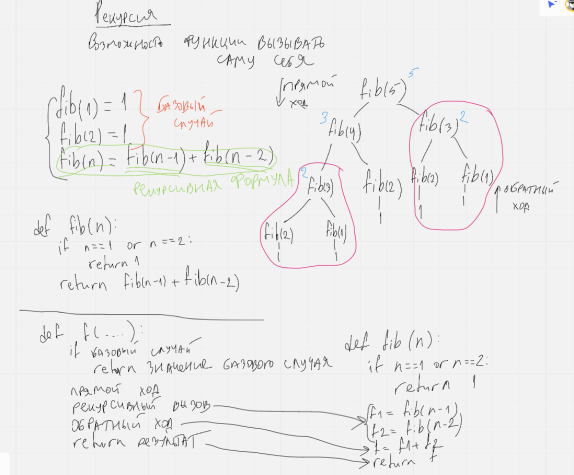 Рекурсия
Возможность функции вызывать
саму себя
fib(1) = 1
fib(2) = 1
fib(n) = fib(n-1) + fib(n-2)
базовый
случай
рекурсивная формула
прямой
ход
fib(5) 5
3 fib(4)
fib(3) 2
2 fib(3)
fib(2)
1
fib(2)
1
fib(1)
1
fib(2)
1
fib(1)
1
обратный
ход
def fib(n):
if n==1 or n==2:
return 1
return fib(n-1) + fib(n-2)
def f(....):
if базовый случай
return значение базового случая
прямой ход
рекурсивный вызов
обратный ход
return результат
def fib(n):
if n==1 or n==2:
return 1
f1 = fib(n-1)
f2 = fib(n-2)
f = f1 + f2
return f